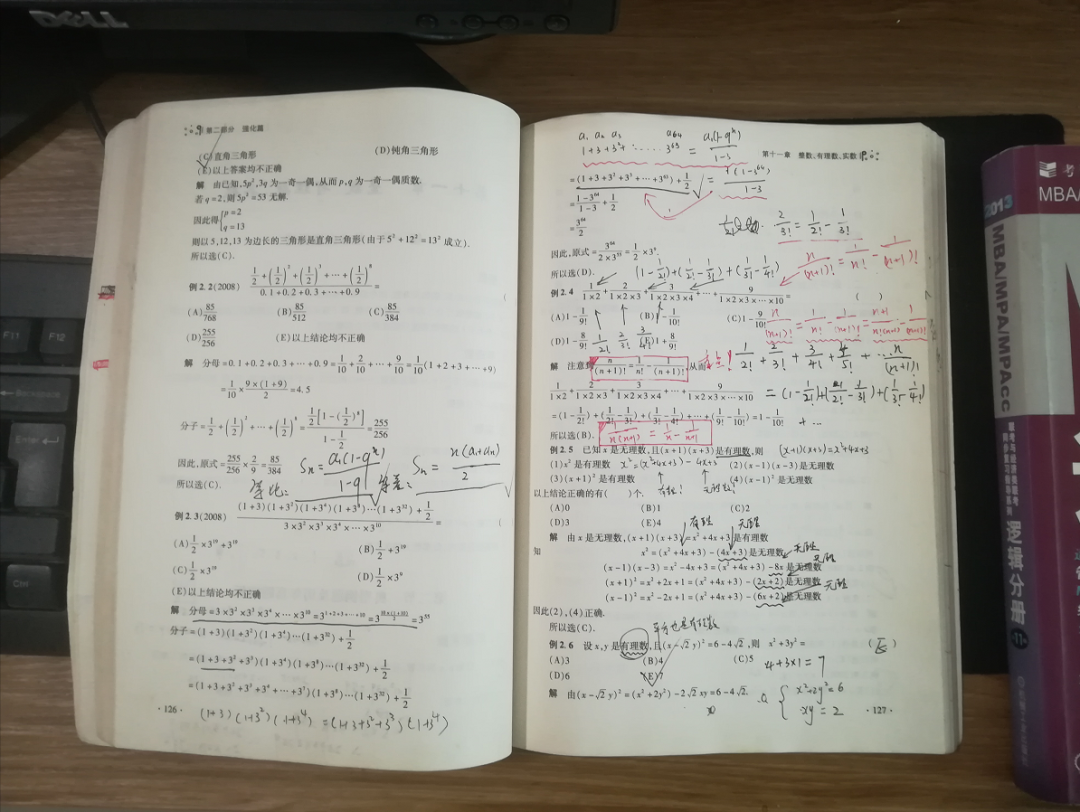 DELL
F11
F12
Backspace
Enter
Ctrl
第二部分 强化篇
(C)直角三角形 (D)钝角三角形
(E)以上答案均不正确
解 由已知,5p²,3q为一奇一偶,从而p,q为一奇一偶质数.
若q=2,则5p²=53无解.
因此得{p=2 q=13
则以5,12,13为边长的三角形是直角三角形(由于5²+12²=13²成立).
所以选(C).
例2.2(2008) (1/2+(1/2)²+(1/2)³+…+(1/2)⁸)/(0.1+0.2+0.3+…+0.9)=
(A)85/768 (B)85/512 (C)85/384
(D)255/256 (E)以上结论均不正确
解 分母=0.1+0.2+0.3+…+0.9=1/10+2/10+…+9/10=1/10(1+2+3+…+9)
=1/10×9×(1+9)/2=4.5
分子=1/2+(1/2)²+…+(1/2)⁸=1/2[1-(1/2)⁸]/(1-1/2)=255/256
因此,原式=255/256×2/9=85/384
所以选(C).
等比: Sn=a₁(1-qⁿ)/(1-q) 等差: Sn=n(a₁+an)/2
例2.3(2008) ((1+3)(1+3²)(1+3⁴)(1+3⁸)…(1+3³²)+1/2)/(3×3²×3³×3⁴×…×3¹⁰)=
(A)1/2×3¹⁰+3¹⁹ (B)1/2+3¹⁹
(C)1/2×3¹⁹ (D)1/2×3⁹
(E)以上结论均不正确
解 分母=3×3²×3³×3⁴×…×3¹⁰=3¹⁺²⁺³⁺…⁺¹⁰=3^(10×(1+10)/2)=3⁵⁵
分子=(1+3)(1+3²)(1+3⁴)…(1+3³²)+1/2
=(1+3+3²+3³)(1+3⁴)(1+3⁸)…(1+3³²)+1/2
=(1+3+3²+3³+3⁴+…+3⁷)(1+3⁸)…(1+3³²)+1/2
(1+3)(1+3²)(1+3⁴)=(1+3+3²+3³)(1+3⁴)
·126·
第十一章 整数、有理数、实数
a₁ a₂ a₃ a₆₄
1+3+3²+……3⁶³=a₁(1-qⁿ)/(1-3)
=(1+3+3²+3³+…+3⁶³)+1/2
=1(1-3⁶⁴)/(1-3)
=(1-3⁶⁴)/(1-3)+1/2
=3⁶⁴/2
2/3!=1/2!-1/3!
因此,原式=3⁶⁴/(2×3⁵⁵)=1/2×3⁹.
n/(n+1)!=1/n!-1/(n+1)!
所以选(D).
(1-1/2!)+(1/2!-1/3!)+(1/3!-1/4!)
例2.4 1/(1×2)+2/(1×2×3)+3/(1×2×3×4)+…+9/(1×2×3×…×10)= ( )
(A)1-1/9! (B)1-1/10! (C)1-9/10!
(D)1-8/9! (E)1+8/9!
1/2! 2/3! 3/4!
n/(n+1)!=1/n!-1/(n+1)!=
解 注意到n/(n+1)!=1/n!-1/(n+1)!,从而
1/2!+2/3!+3/4!+4/5!+…n/(n+1)!
1/(1×2)+2/(1×2×3)+3/(1×2×3×4)+…+9/(1×2×3×…×10)
=(1-1/2!)+(1/2!-1/3!)+(1/3!-1/4!)
+…
=(1-1/2!)+(1/2!-1/3!)+(1/3!-1/4!)+…+(1/9!-1/10!)=1-1/10!
所以选(B).
1/n(n+1)=1/n-1/(n+1)
例2.5 已知x是无理数,且(x+1)(x+3)是有理数,则
(x+1)(x+3)=x²+4x+3
(1)x²是有理数 (2)(x-1)(x-3)是无理数
x²=(x²+4x+3)-4x+3
(3)(x+1)²是有理数 (4)(x-1)²是无理数
有理! 无理!
以上结论正确的有( )个.
(A)0 (B)1 (C)2
(D)3 (E)4
有理 无理
解 由x是无理数,(x+1)(x+3)=x²+4x+3是有理数
知 x²=(x²+4x+3)-(4x+3)是无理数
无理
(x-1)(x-3)=x²-4x+3=(x²+4x+3)-8x是无理数
无理
(x+1)²=x²+2x+1=(x²+4x+3)-(2x+2)是无理数
无理
(x-1)²=x²-2x+1=(x²+4x+3)-(6x+2)是无理数
因此(2),(4)正确.
所以选(C).
例2.6 设x,y是有理数,且(x-√2y)²=6-4√2,则 x²+3y²= (E)
(A)3 (B)4 (C)5
(D)6 (E)7
4+3×1=7
解 由(x-√2y)²=(x²+2y²)-2√2xy=6-4√2.
{x²+2y²=6
xy=2
·127·
2013
MBA/MPA/MPAcc
逻辑分册
MBA/